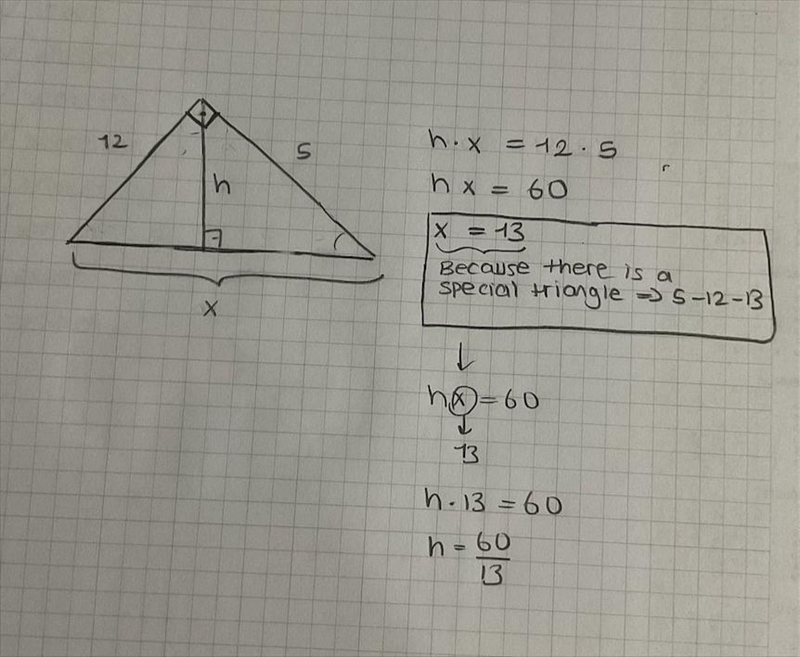 12
5
h
x
h · x = 12 · 5
h x = 60
x = 13
Because there is a
special triangle ⇒ 5-12-13
↓
h x = 60
↓
13
h · 13 = 60
h = 60/13